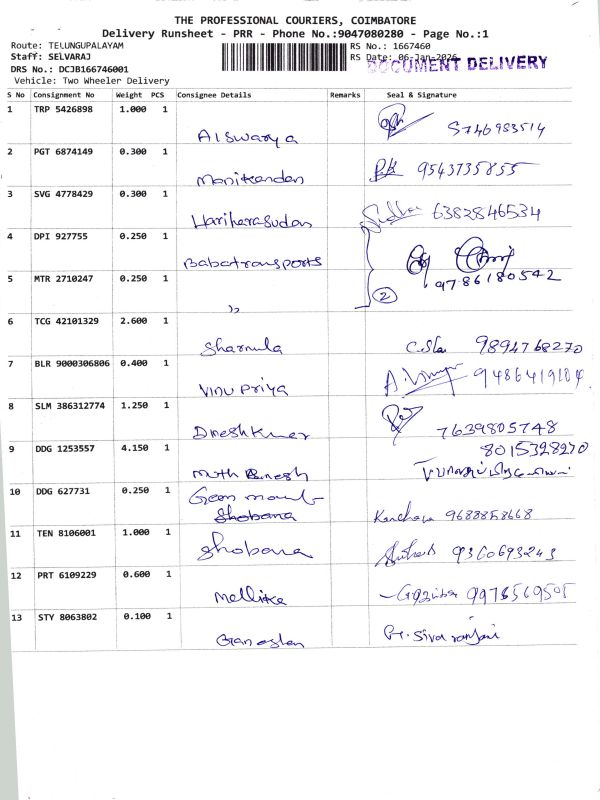 THE PROFESSIONAL COURIERS, COIMBATORE
Delivery Runsheet - PRR - Phone No.:9047080280 - Page No.:1
Route: TELUNGUPALAYAM
Staff: SELVARAJ
DRS No.: DCJB166746001
Vehicle: Two Wheeler Delivery
RS No.: 1667460
RS Date: 06-Jan-2026
DOCUMENT DELIVERY
S No Consignment No Weight PCS Consignee Details Remarks Seal & Signature
1 TRP 5426898 1.000 1 Aiswarya 5746983514
2 PGT 6874149 0.300 1 Manikandan 9543735855
3 SVG 4778429 0.300 1 Hariharasudan 6382846534
4 DPI 927755 0.250 1 Babatransports
5 MTR 2710247 0.250 1 ,, 2 9786180542
6 TCG 42101329 2.600 1 Sharmila 9894768270
7 BLR 9000306806 0.400 1 Vinu Priya 9486419184
8 SLM 386312774 1.250 1 Dinesh Kumar 7639805748
9 DDG 1253557 4.150 1 8015328270
10 DDG 627731 0.250 1 Shobana 9688858668
11 TEN 8106001 1.000 1 Shobana 9360693243
12 PRT 6109229 0.600 1 Mellitta
13 STY 8063802 0.100 1 Sivaranjani